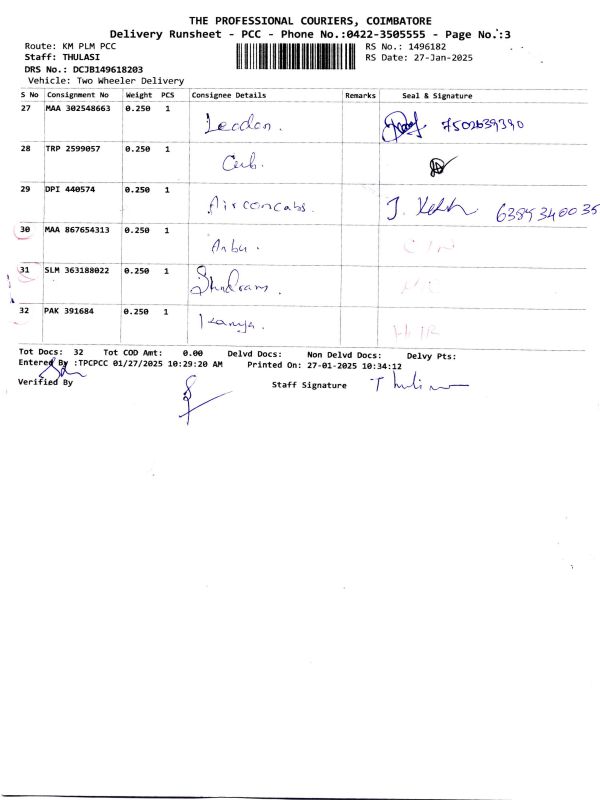 THE PROFESSIONAL COURIERS, COIMBATORE
Delivery Runsheet - PCC - Phone No.:0422-3505555 - Page No.:3
Route: KM PLM PCC
RS No.: 1496182
Staff: THULASI
RS Date: 27-Jan-2025
DRS No.: DCJB149618203
Vehicle: Two Wheeler Delivery
S No Consignment No Weight PCS Consignee Details Remarks Seal & Signature
27 MAA 302548663 0.250 1 7502639390
28 TRP 2599057 0.250 1 Cub.
29 DPI 440574 0.250 1 Airconcabs. 6389340035
30 MAA 867654313 0.250 1 Anbu.
31 SLM 363188022 0.250 1
32 PAK 391684 0.250 1 Kanya. H/R
Tot Docs: 32 Tot COD Amt: 0.00 Delvd Docs: Non Delvd Docs: Delvy Pts:
Entered By :TPCPCC 01/27/2025 10:29:20 AM Printed On: 27-01-2025 10:34:12
Verified By Staff Signature